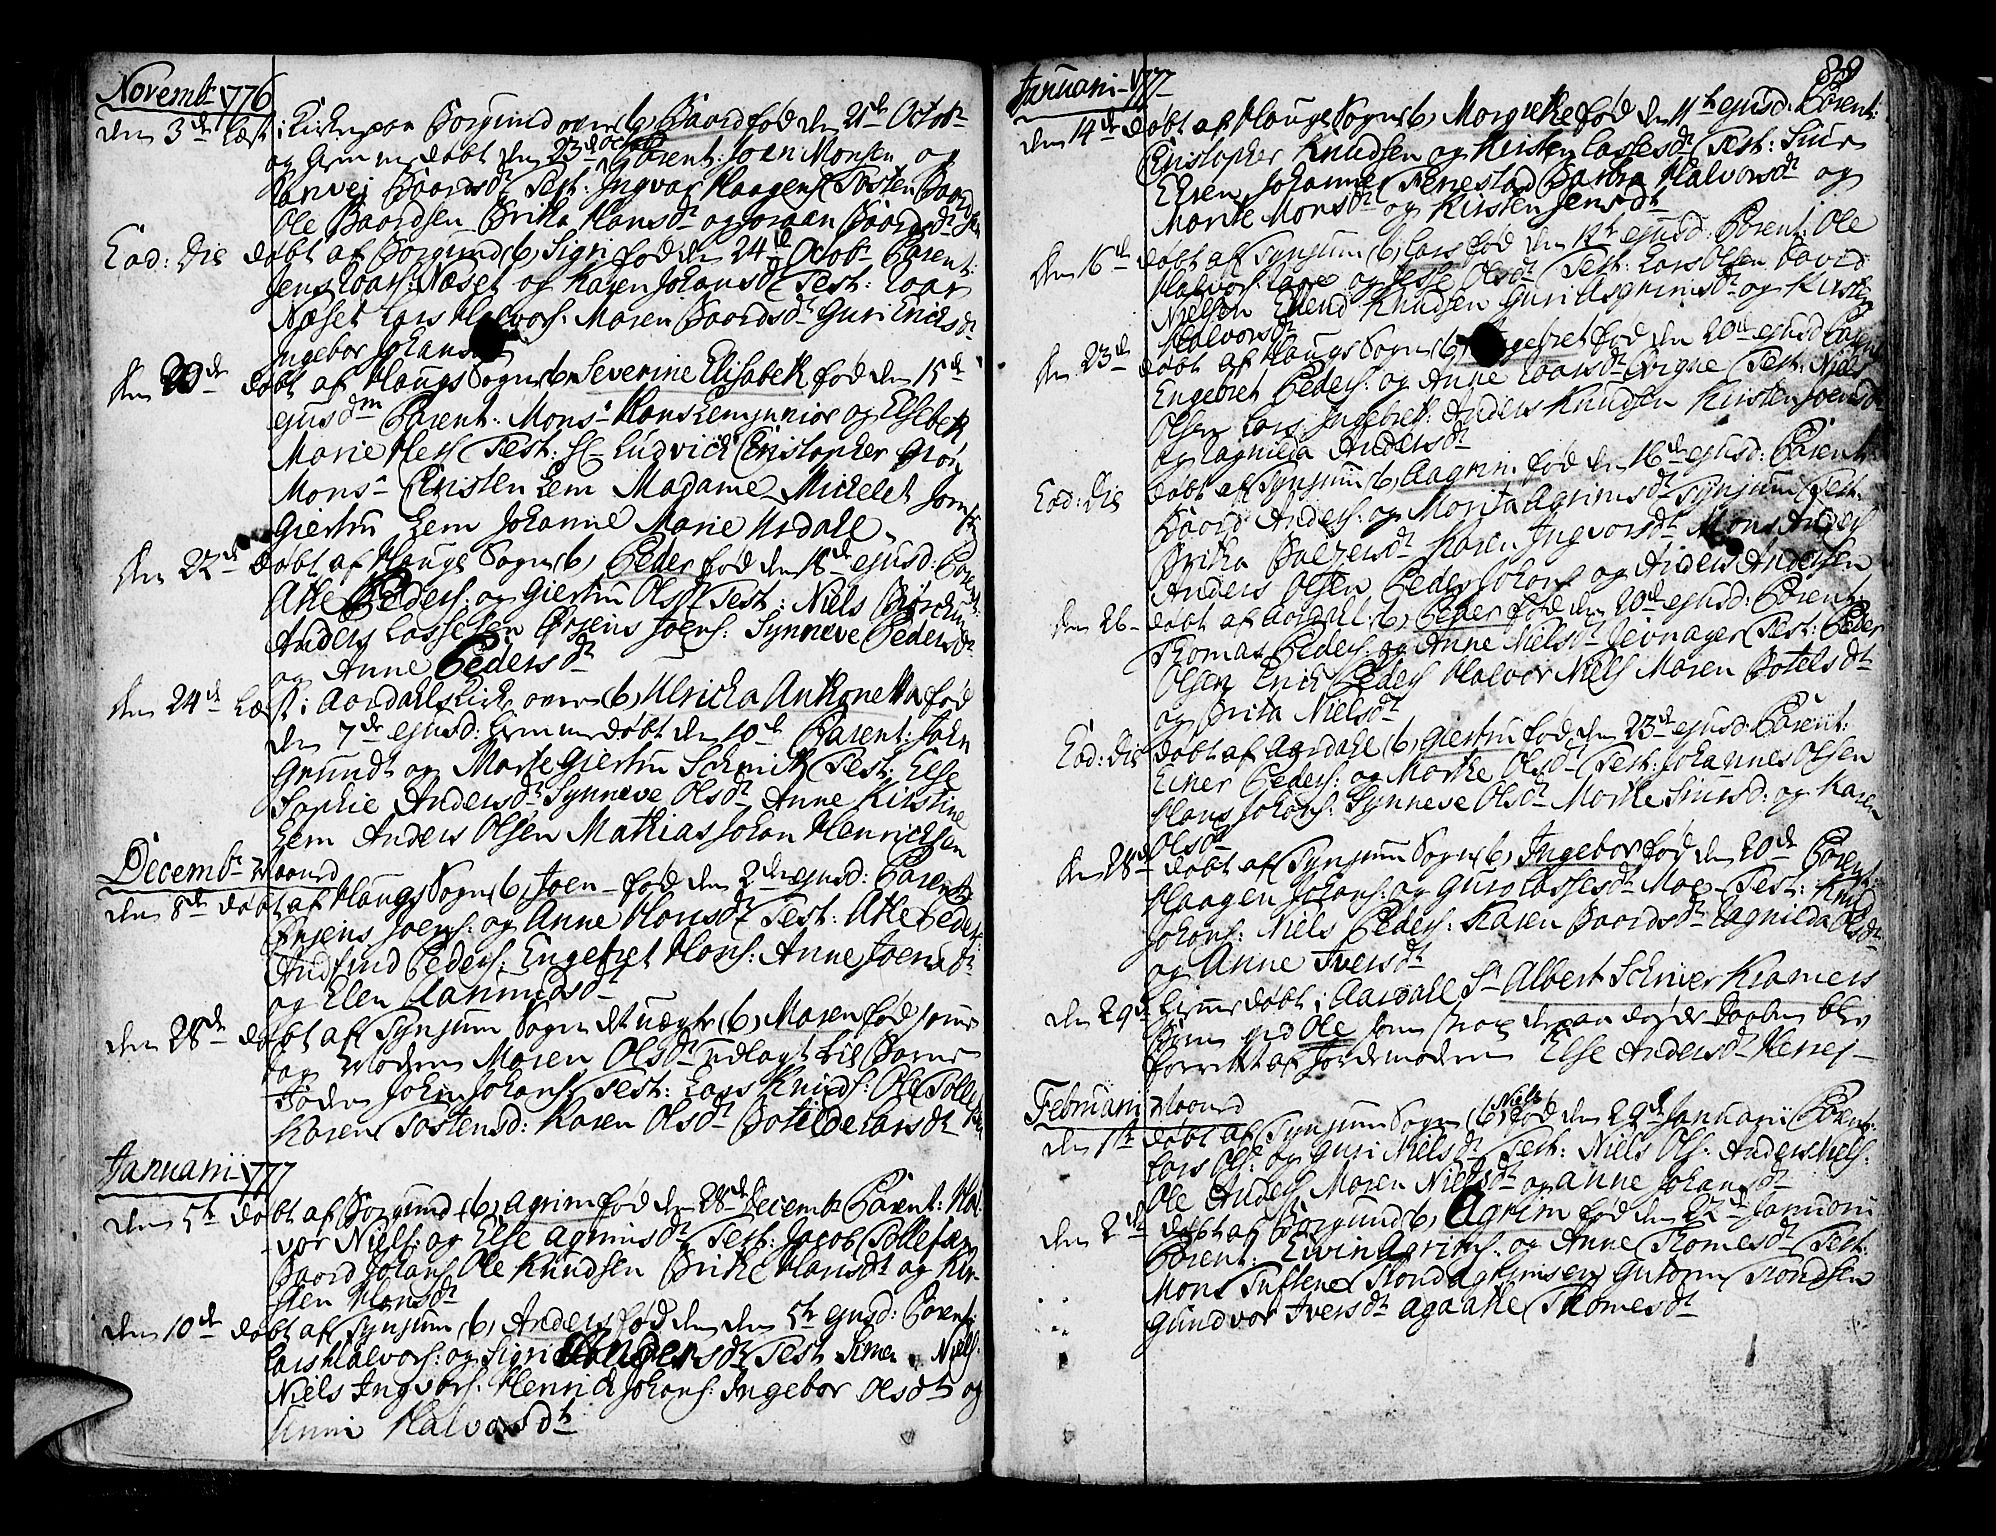 Novemb 1776
den 3de læst i Kirken paa Borgund over (b) Baard fød den 21de Octob
og hiemmedøbt den 23de Octob Parent: Joen Monsen og
Ranvei Baardsdt Test: Ingvar Haagens Tosten Baardsen
Ole Baardsen Britha Hansdt og Joraan Baardsdt
Eod: Die døbt af Borgund (b) Sigri fød den 24de Octob Parent:
Jens Loars: Næset og Karen Johansdt Test: Loar
Næset Lars Halvors: Maren Baardsdt Guri Erichsdt
Ingebor Johansdt
den 20de døbt af Haugs Sogn (b) Severine Elisabeth fød den 15de
ejusdm Parent: Mons Hans Lem junior og Elsebeth
Marie Hess Test: Hr Ludvich Christopher
Mons Christen Lem Madame Michelet
Giertru Lem Johanne Marie Urdahl
den 22de døbt af Haugs Sogn (b) Peder fød den 18de ejusd: Parent:
Atle Peders: og Giertru Olsdt Test: Niels
Anders Lassesen Ørjens Joens: Synneve Pedersdt
og Anne Pedersdt
den 24de læst i Aardahls Kirk over (b) Ulricha Anthonetta fød
den 7de ejusd: hiemmedøbt den 10de Parent: John
Grundt og Marte Giertru Schmith Test: Else
Sophie Andersdt Synneve Olsdt Anne Kirstine
Lem Anders Olsen Mathias Johan Henrichsen
Decemb Maaned
den 8de døbt af Haugs Sogn (b) Joen fød den 2den ejusd: Parent
Ørjens Joens: og Anne Monsdt Test: Atle Peders:
Andfind Peders: Engebret Hans: Anne Joensdt
og Elen Aanundsdt
den 28de døbt af Tynjum Sogn det uægte (b) Maren fød
og Moderen Maren Olsdt udlagt til Barne
Faderen John Johans Test: Lars Knuds: Ole Tolle
Karen Tostensd: Karen Olsdt Botilde Larsdt
Januarii 1777
den 5te døbt af Borgund (b) Agrim fød den 28de Decemb Parent: Hal-
vor Niels: og Else Agrimsdt Test: Jacob Tollefsen
Baard Johans Ole Knudsen Brithe Hansdt og Kir-
sten Hansdt
den 10de døbt af Tynjum (b) Anders fød den den 5te ejusd: Parent:
Lars Halvors: og Sigri Andersdt Test Simen Niels:
Niels Ingvors: Henrich Johans: Ingebor Olsdt og
Halvorsdt
89
Januarii 1777
den 14de døbt af Haugs Sogn (b) Margrethe fød den 11te ejusd: Parent:
Christopher Knudsen og Kirsten Lassesdt Test: Siur
Johannes Fenestad Barbra Halvorsdt og
Marite Monsdt og Kirsten Jensdt
den 16de døbt af Tynjum (b) Lars fød den 12te ejusd: Parent: Ole
Halvors: og Olsdt Test: Lars Olsen David
Nielsen Ellend Knudsen Guri Asgrimsdt og Kirsten
Halvorsdt
den 23de døbt af Haugs Sogn (b) Engebret fød den 20de ejusd Parent
Engebret Peders: og Anne Loarsdt Test: Niels
Olsen Lars Ingebret: Anders Knudsen Kirsten Joensdt
og Ragnilda Andersdt
Eod: Die døbt af Tynjum (b) Aagrim fød den 16de ejusd: Parent
Baard Anders: og Marita Agrimsdt Tynjum Test:
Britha Baltzersdt Karen Ingvorsdt Mons Anders
Anders Olsen Peder Johans og Anders Andersen
den 26 døbt af Aardahl (b) Peder fød den 20de ejusd: Parent:
Thomas Peders: og Anne Nielsdt Test: Peder
Olsen Erich Peders Halvor Niels Maren Botelsdt
og Brita Nielsdt
Eod: Die døbt af Aardahl (b) Giertru fød den 23de ejusd: Parent:
Einer Peders: og Marthe Olsdt Test: Johannes Olsen
Hans Johans: Synneve Olsdt Marthe Siursd: og Karen
Olsdt
den 28de døbt af Tynjum Sogn (b) Ingebor fød den 20de Parent:
Haagen Johans: og Guro Lassesdt Moe Test: Knud
Johans: Niels Peders: Karen Baardsdt Ragnilda Olsdt
og Anne Iversdt
den 29de hiemmedøbt i Aardahl Sr Albert Schiver Kramers
Barn ved Ole som strax derpaa døde Daaben blev
forrettet af Jordemoderen Else Andersdt
Februarii Maaned
den 1te døbt af Tynjum Sogn (b) Niels fød den 29de Januarii Parent:
Lars Ols: og Guri Nielsdt Test: Niels Ols: Anders Niels:
Ole Anders Maren Nielsdt og Anne Johansdt
den 2de døbt af Borgund (b) Agrim fød den 22de Januarii
Parent: Eivin Agrims: og Anne Thomesdt Test:
Mons Tuftene Trond Agrimsen Gutorm Trondsen
Gundvor Iversdt Agaathe Thomesdt